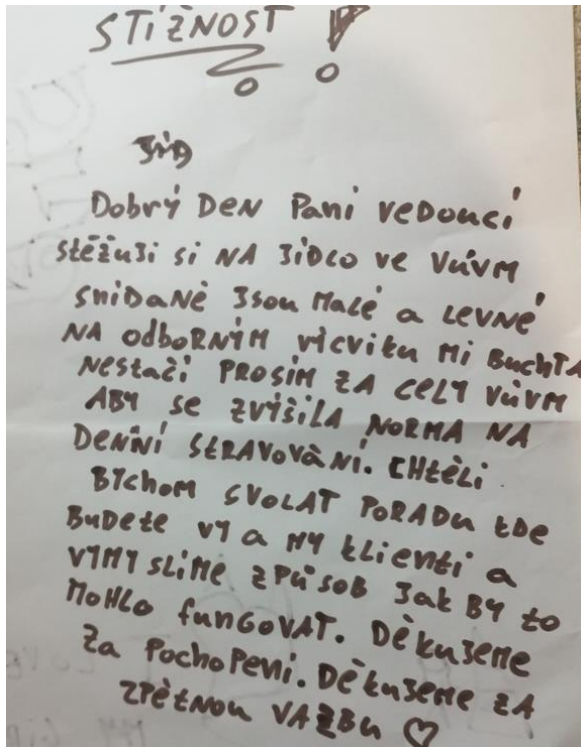 STÍŽNOST !
DobRÝ DEN PaNí VEDoucí
stěžuJi si NA JíDLO VE VÚVM
SNíDaNĚ JSou MaLÉ a LEVNÉ
NA odboRNÝM VÍCVIKU Mi BuchTA
NEStačí PROSíM ZA CELÝ VÚVM
ABY SE ZVÍŠILA NORMA NA
DENNí StRAVoVáNí. CHtĚLi
BYChoM SVOLAT PORADU KDE
BuDEtE VY a MY KLiENti a
VYMYSLíME ZPŮSOB JaK BY to
MoHLo fuNGoVAT. DĚKuJEME
Za PochoPENí. DĚKuJEME ZA
ZPĚtNou VAZBu ♡